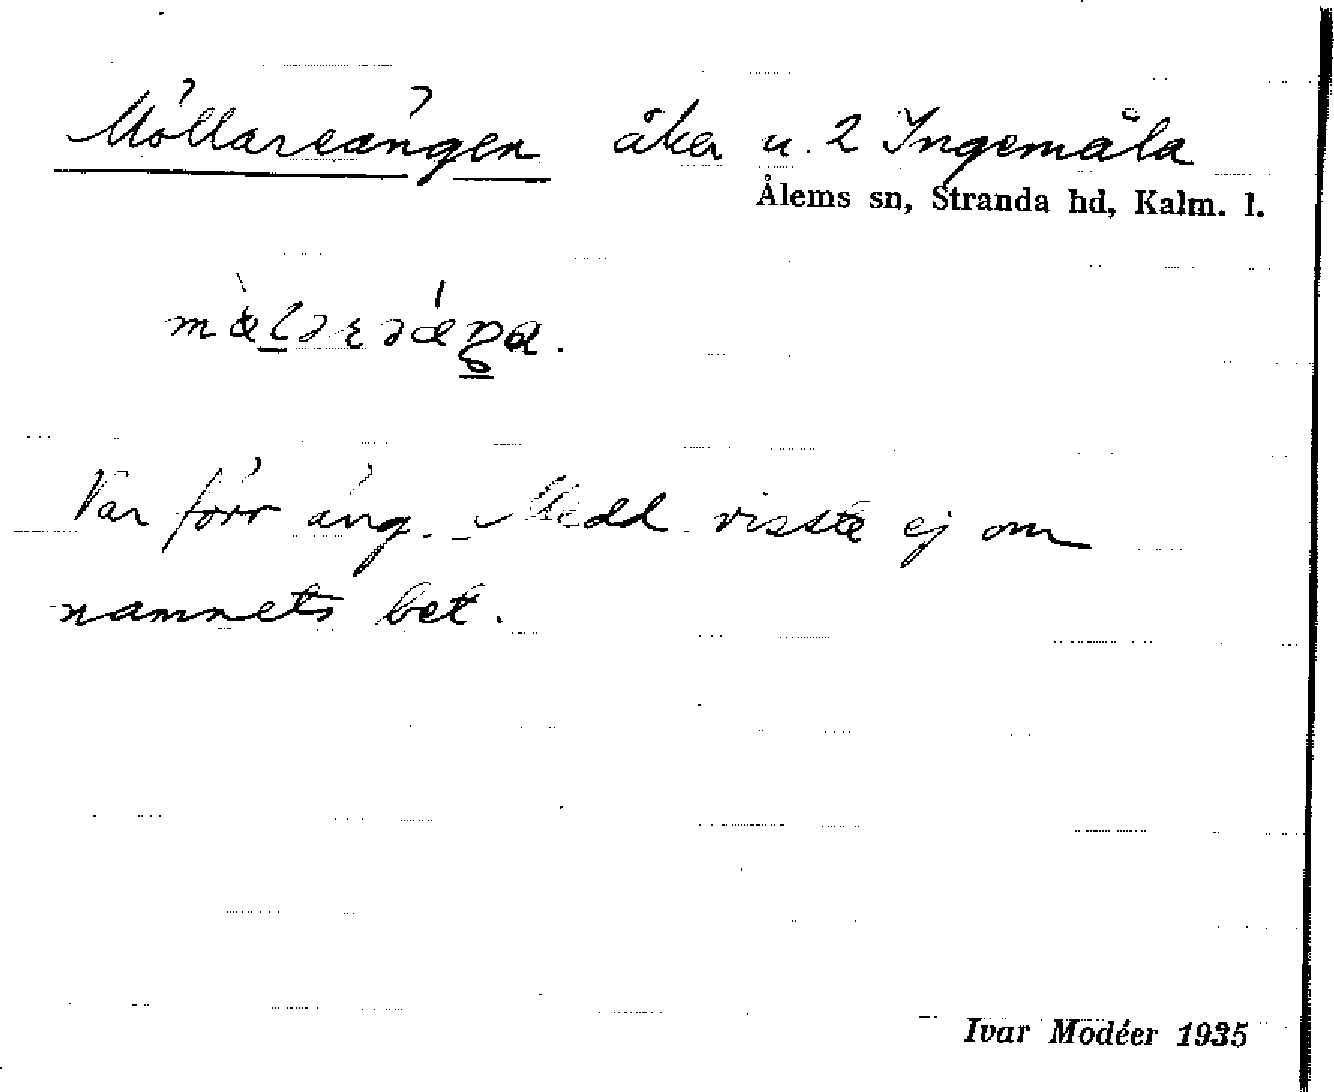 Möllareängen åker u. 2 Ingemåla
Ålems sn, Stranda hd, Kalm. l.
Var förr äng. Medd visste ej om
namnets bet.
Ivar Modéer 1935